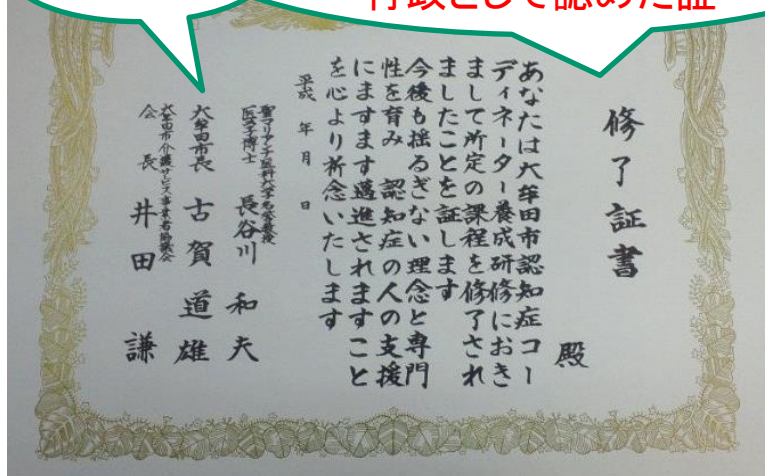 行政として認めた証
修了証書
殿
あなたは大牟田市認知症コー
ディネーター養成研修におき
まして所定の課程を修了され
ましたことを証します
今後も揺るぎない理念と専門
性を育み 認知症の人の支援
にますます邁進されますこと
を心より祈念いたします
平成 年 月 日
聖マリアンナ医科大学名誉教授
医学博士 長谷川 和夫
大牟田市長 古賀 道雄
大牟田市介護サービス事業者協議会
会長 井田 謙